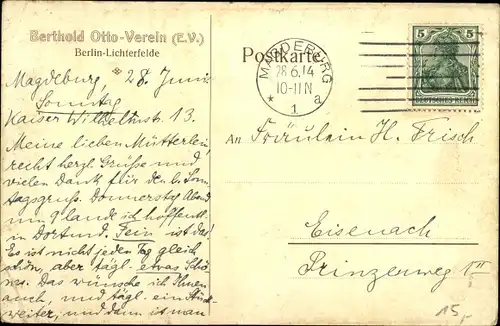 Berthold Otto-Verein (E.V.)
Berlin-Lichterfelde
Postkarte
MAGDEBURG
28.6.14
10-11 N
* 1 a
5
5
DEUTSCHES REICH
Magdeburg 28. Juni
Sonntag
Kaiser Wilhelmstr. 13.
Meine lieben Mütterlein
recht herzl. Grüße und
vielen Dank für den l. Sonn
tagsgruß. Donnerstag Abend
um 9 lande ich hoffentl.
in Dortmund. Fein ist das!
Es ist nicht jeden Tag gleich
schön, aber tägl. etwas Schö
nes. Das wünsche ich Ihnen
auch, und tägl. ein Stück
weiter, und dann ist man
An Fräulein H. Frisch
Eisenach
Prinzenweg
15,-